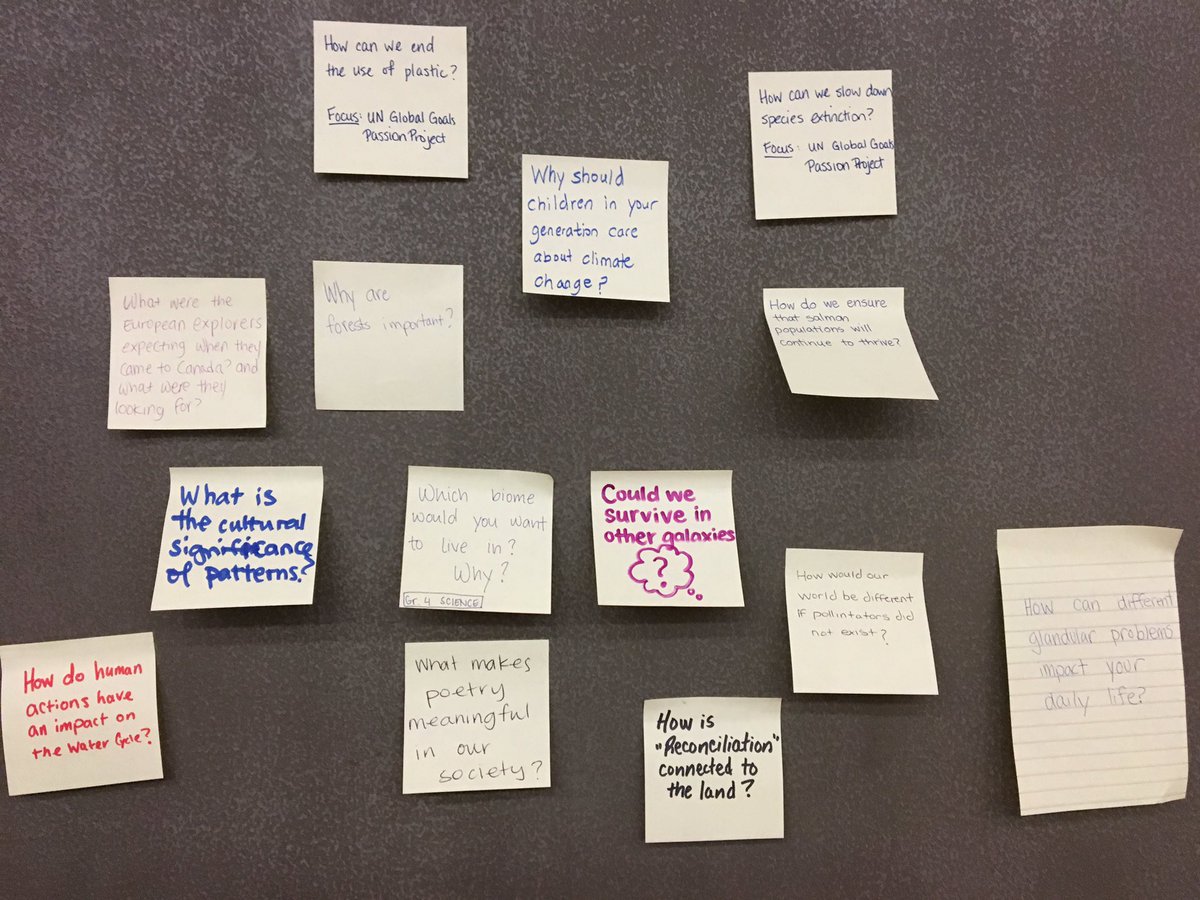 How can we end
the use of plastic?
Focus: UN Global Goals
Passion Project
How can we slow down
species extinction?
Focus: UN Global Goals
Passion Project
Why should
children in your
generation care
about climate
change?
What were the
European explorers
expecting when they
came to Canada? and
what were they
looking for?
Why are
forests important?
How do we ensure
that salmon
populations will
continue to thrive?
What is
the cultural
significance
of patterns?
Which biome
would you want
to live in?
Why?
Gr. 4 SCIENCE
Could we
survive in
other galaxies
?
How would our
world be different
if pollintators did
not exist?
How can different
glandular problems
impact your
daily life?
How do human
actions have
an impact on
the Water Cycle?
What makes
poetry
meaningful
in our
society?
How is
"Reconciliation"
connected to
the land?